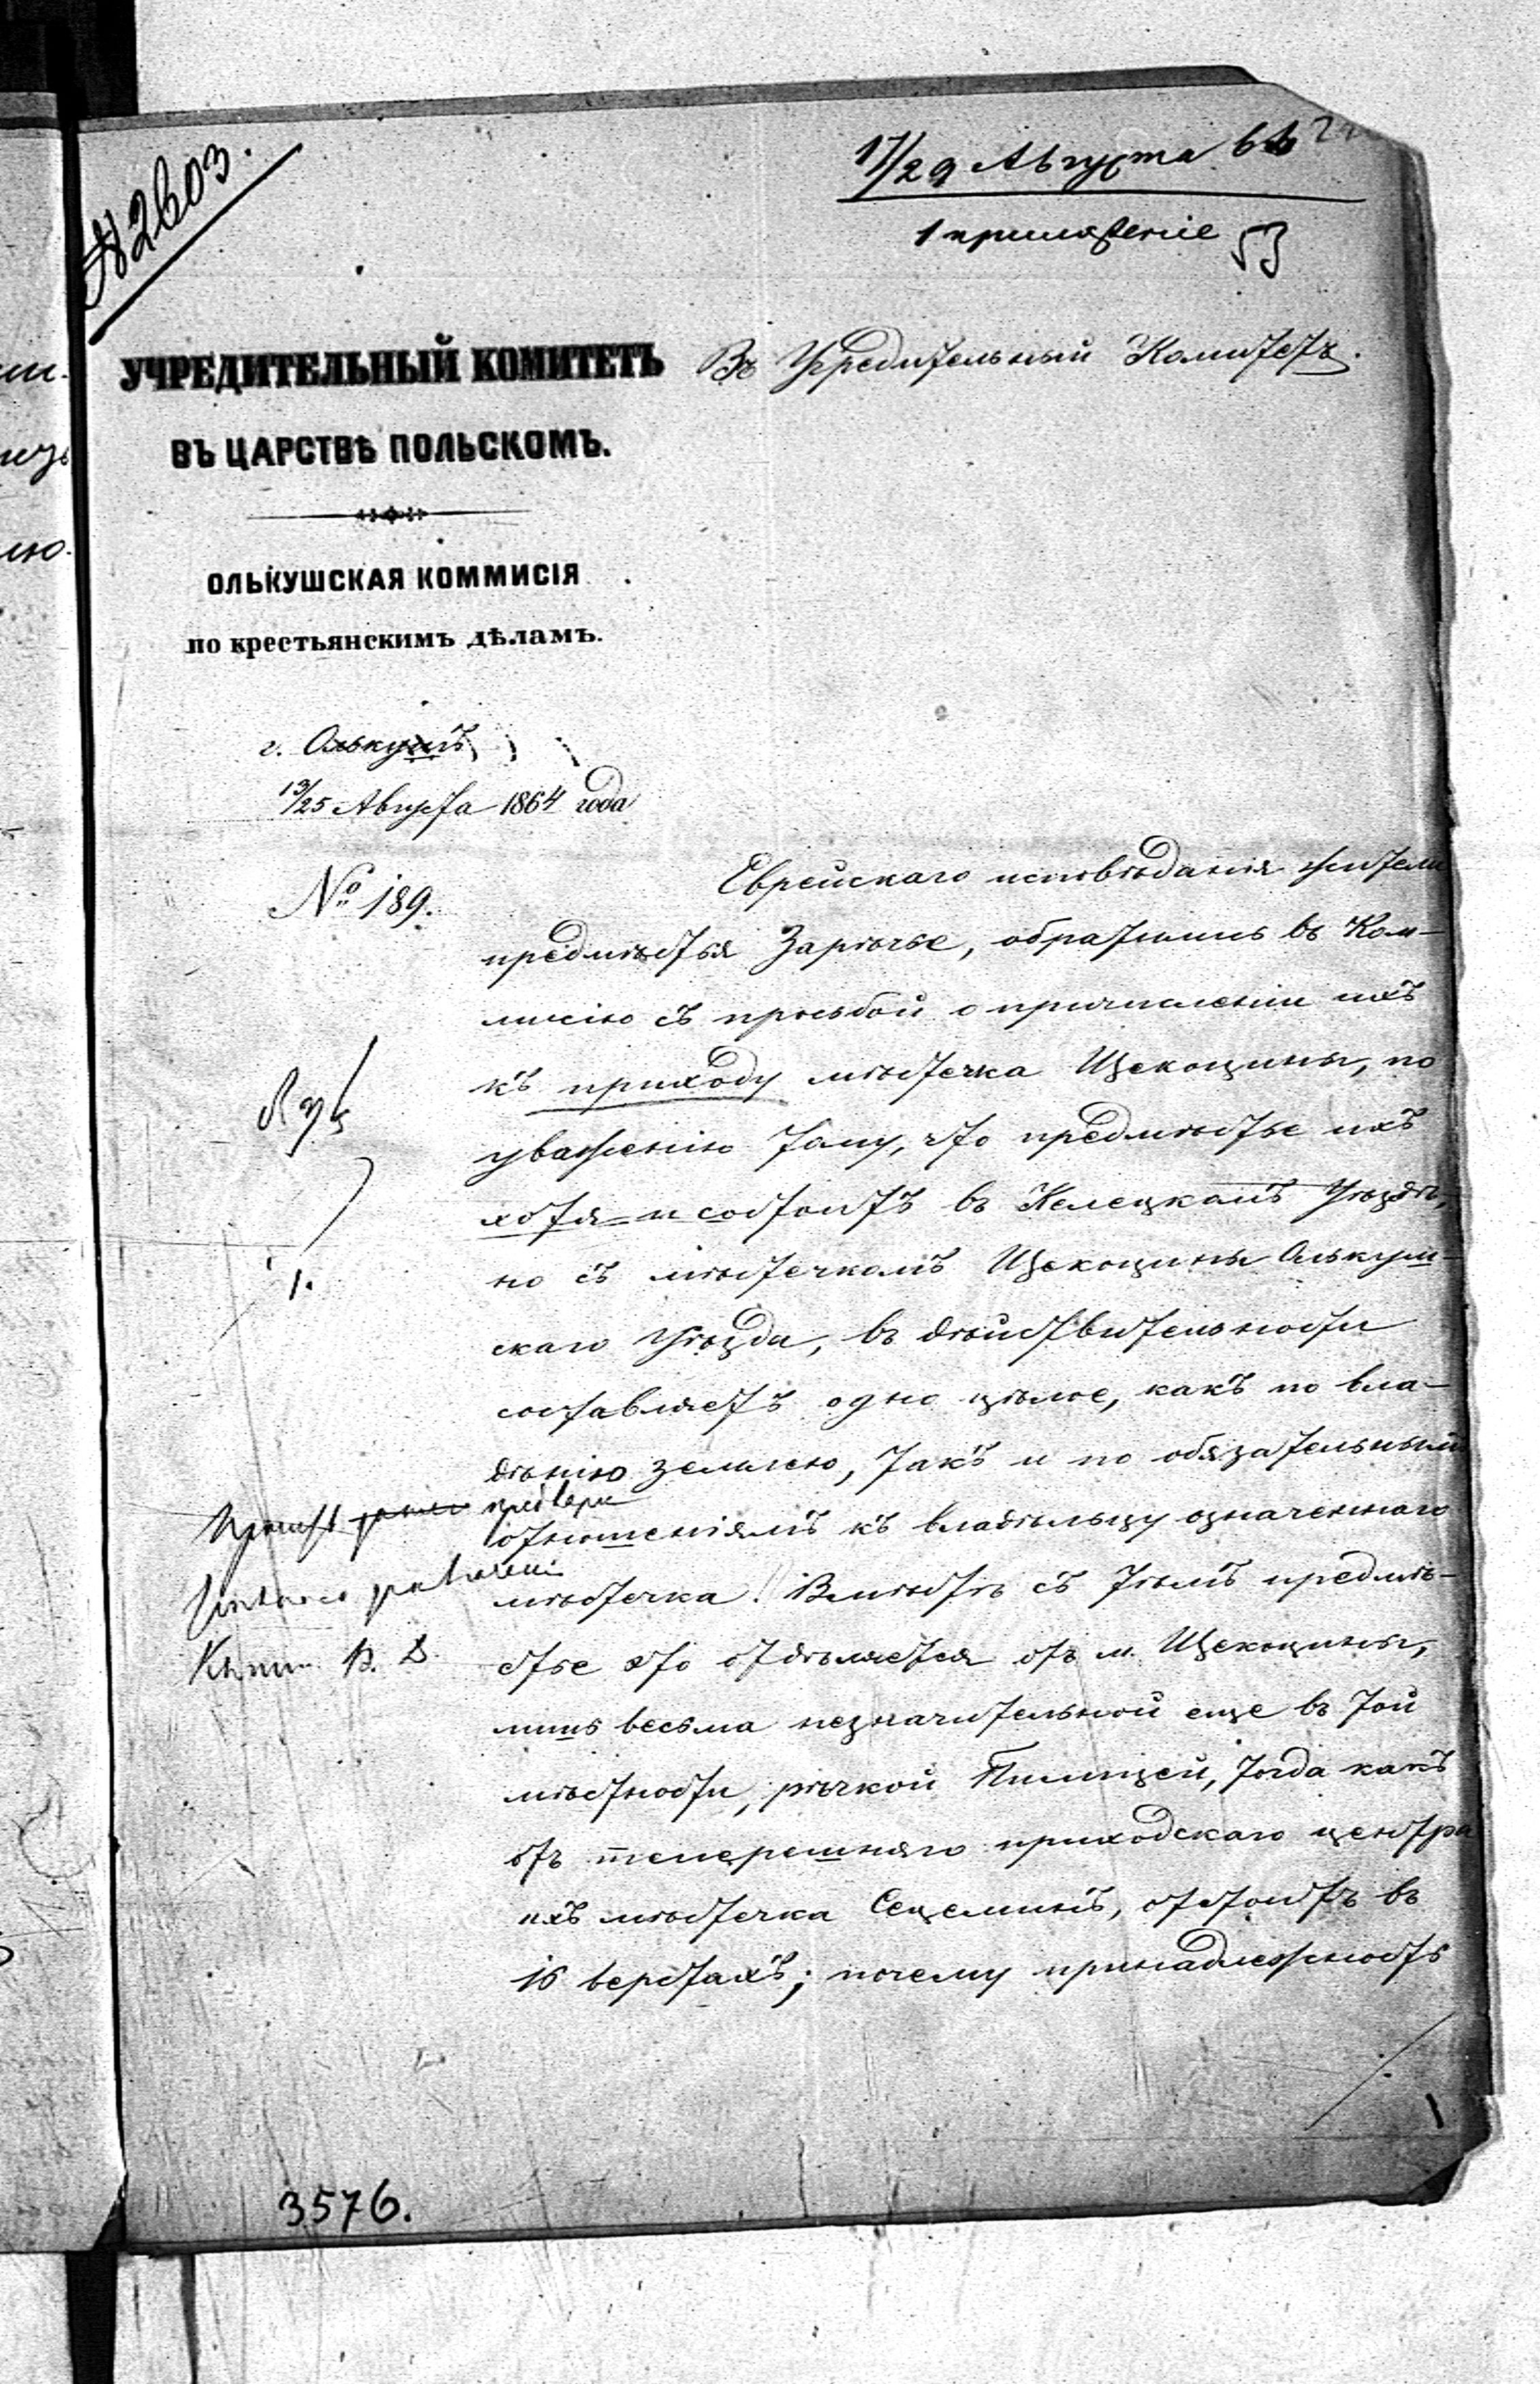 № 2603.
17/29 Августа 64
1 приложеніе
53
УЧРЕДИТЕЛЬНЫЙ КОМИТЕТЪ
ВЪ ЦАРСТВѢ ПОЛЬСКОМЪ.
ОЛЬКУШСКАЯ КОММИСІЯ
по крестьянскимъ дѣламъ.
г. Олькушъ
13/25 Августа 1864 года
№ 189.
Въ Учредительный Комитетъ.
Еврейскаго исповѣданія жители
предмѣстья Зарѣчье, обратились въ Ком-
мисію съ просьбой о причисленіи ихъ
къ приходу мѣстечка Щекоцины, по
уваженію тому, что предмѣстье ихъ
хотя и состоитъ въ Келецкомъ Уѣздѣ,
но съ мѣстечкомъ Щекоцины Олькуш-
скаго Уѣзда, въ дѣйствительности
составляетъ одно цѣлое, какъ по вла-
дѣнію землею, такъ и по обязательнымъ
отношеніямъ къ владѣльцу означеннаго
мѣстечка. Вмѣстѣ съ тѣмъ предмѣ-
стье это отдѣляется отъ м. Щекоцины,
лишь весьма незначительной еще въ той
мѣстности, рѣчкой Пилицей, тогда какъ
отъ теперешняго приходскаго центра
ихъ мѣстечка Сецеминъ, отстоитъ въ
16 верстахъ; почему принадлежность
1.
В. Д.
3576.